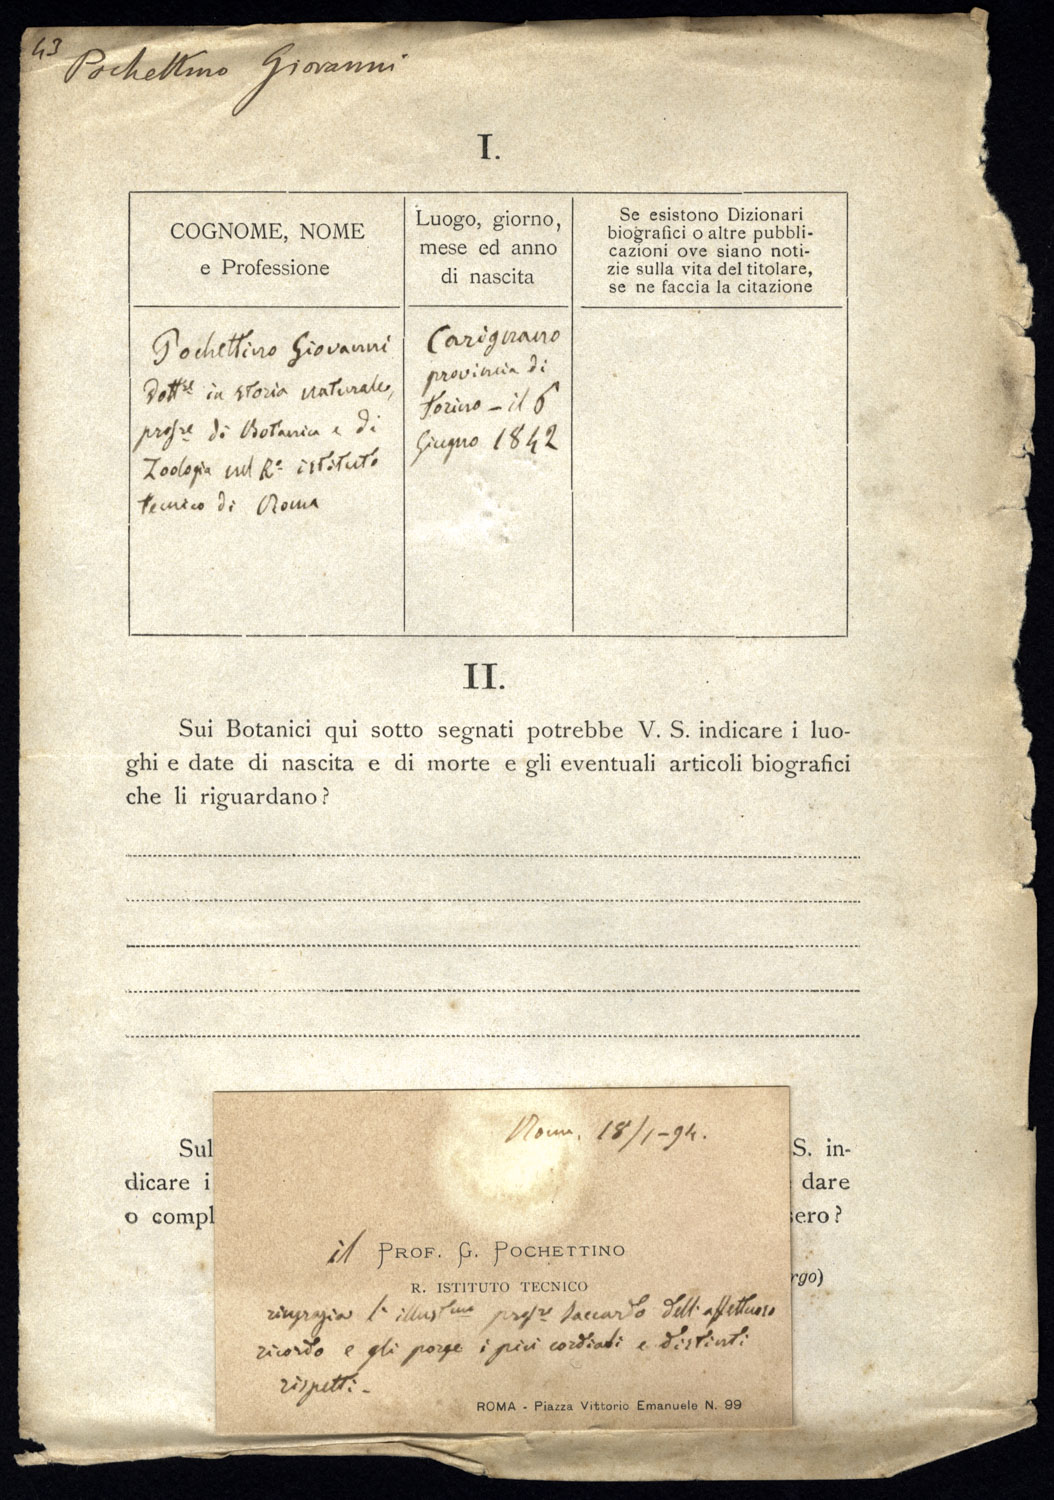 43 Pochettino Giovanni
I.
COGNOME, NOME
e Professione
Luogo, giorno,
mese ed anno
di nascita
Se esistono Dizionari
biografici o altre pubbli-
cazioni ove siano noti-
zie sulla vita del titolare,
se ne faccia la citazione
Pochettino Giovanni
Dottre in storia naturale,
profre di Botanica e di
Zoologia nel Re istituto
tecnico di Roma
Carignano
provincia di
Torino - il 6
Giugno 1842
II.
Sui Botanici qui sotto segnati potrebbe V. S. indicare i luo-
ghi e date di nascita e di morte e gli eventuali articoli biografici
che li riguardano?
Sul
S. in-
dicare i
dare
o compl
sero?
rgo)
Roma, 18/1-94.
il PROF. G. POCHETTINO
R. ISTITUTO TECNICO
ringrazia l'illustmo profre Saccardo dell'affettuoso
ricordo e gli porge i più cordiali e distinti
rispetti.-
ROMA - Piazza Vittorio Emanuele N. 99